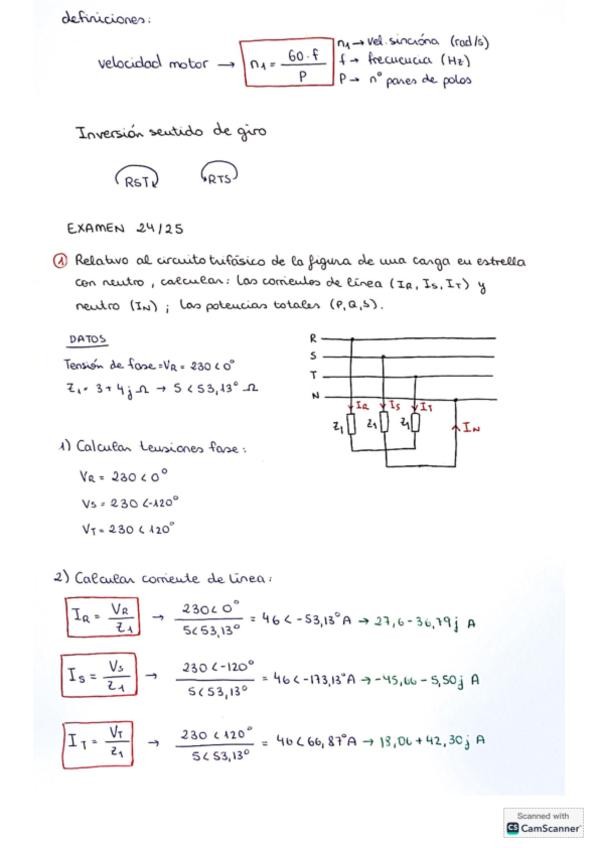 definiciones:
velocidad motor → n1 = 60·f / P
n1 → vel. sincróna (rad/s)
f → frecucucia (Hz)
P → nº pares de polos
Inversión sentido de giro
RST RTS
EXAMEN 24/25
① Relativo al circuito trifásico de la figura de una carga en estrella
con neutro, calcular: las corrientes de línea (IR, IS, IT) y
neutro (IN); las potencias totales (P,Q,S).
DATOS
Tensión de fase = VR = 230 < 0°
Z1 = 3+4j Ω → 5 < 53,13° Ω
R
S
T
N
IR IS IT
Z1 Z1 Z1 IN
1) Calcular tensiones fase:
VR = 230 < 0°
VS = 230 <-120°
VT = 230 < 120°
2) Calcular corriente de línea:
IR = VR / Z1 → 230<0° / 5<53,13° = 46 < -53,13° A → 27,6 - 36,79j A
IS = VS / Z1 → 230 <-120° / 5<53,13° = 46 <-173,13° A → -45,66 - 5,50j A
IT = VT / Z1 → 230 < 120° / 5<53,13° = 46 < 66,87° A → 18,06 + 42,30j A
Scanned with
CS CamScanner